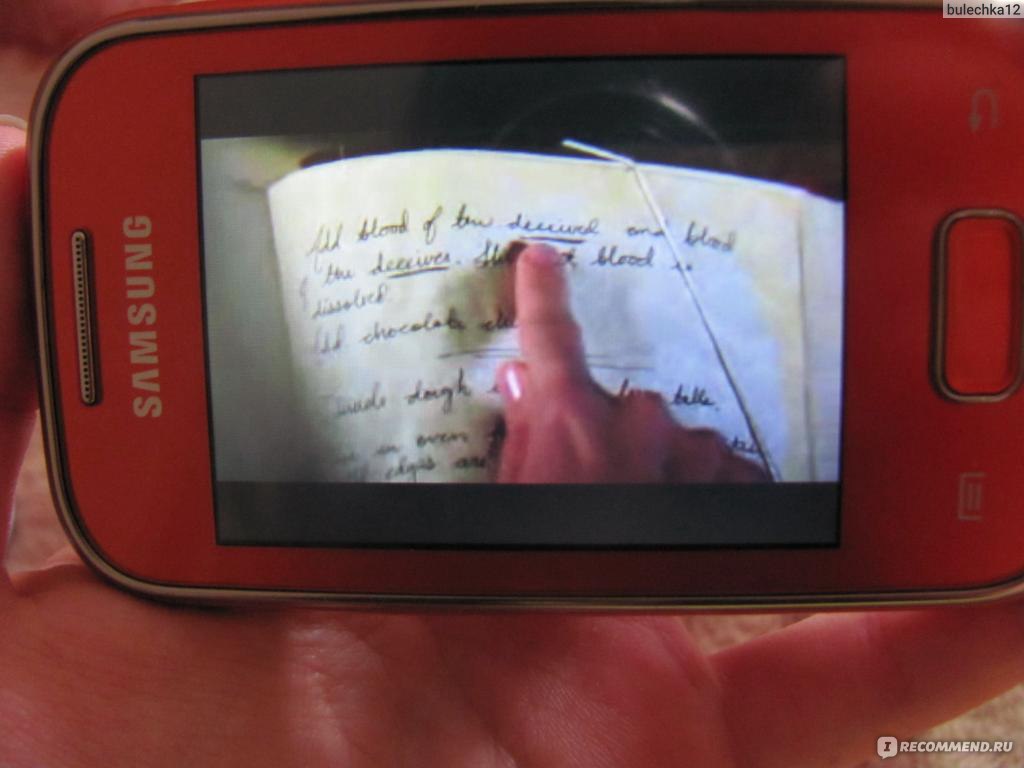 bulechka12
SAMSUNG
Add blood of the deceived and blood
of the deceiver. blood is
dissolved.
Add chocolate
Divide dough balls.
in oven
edges are
IRECOMMEND.RU